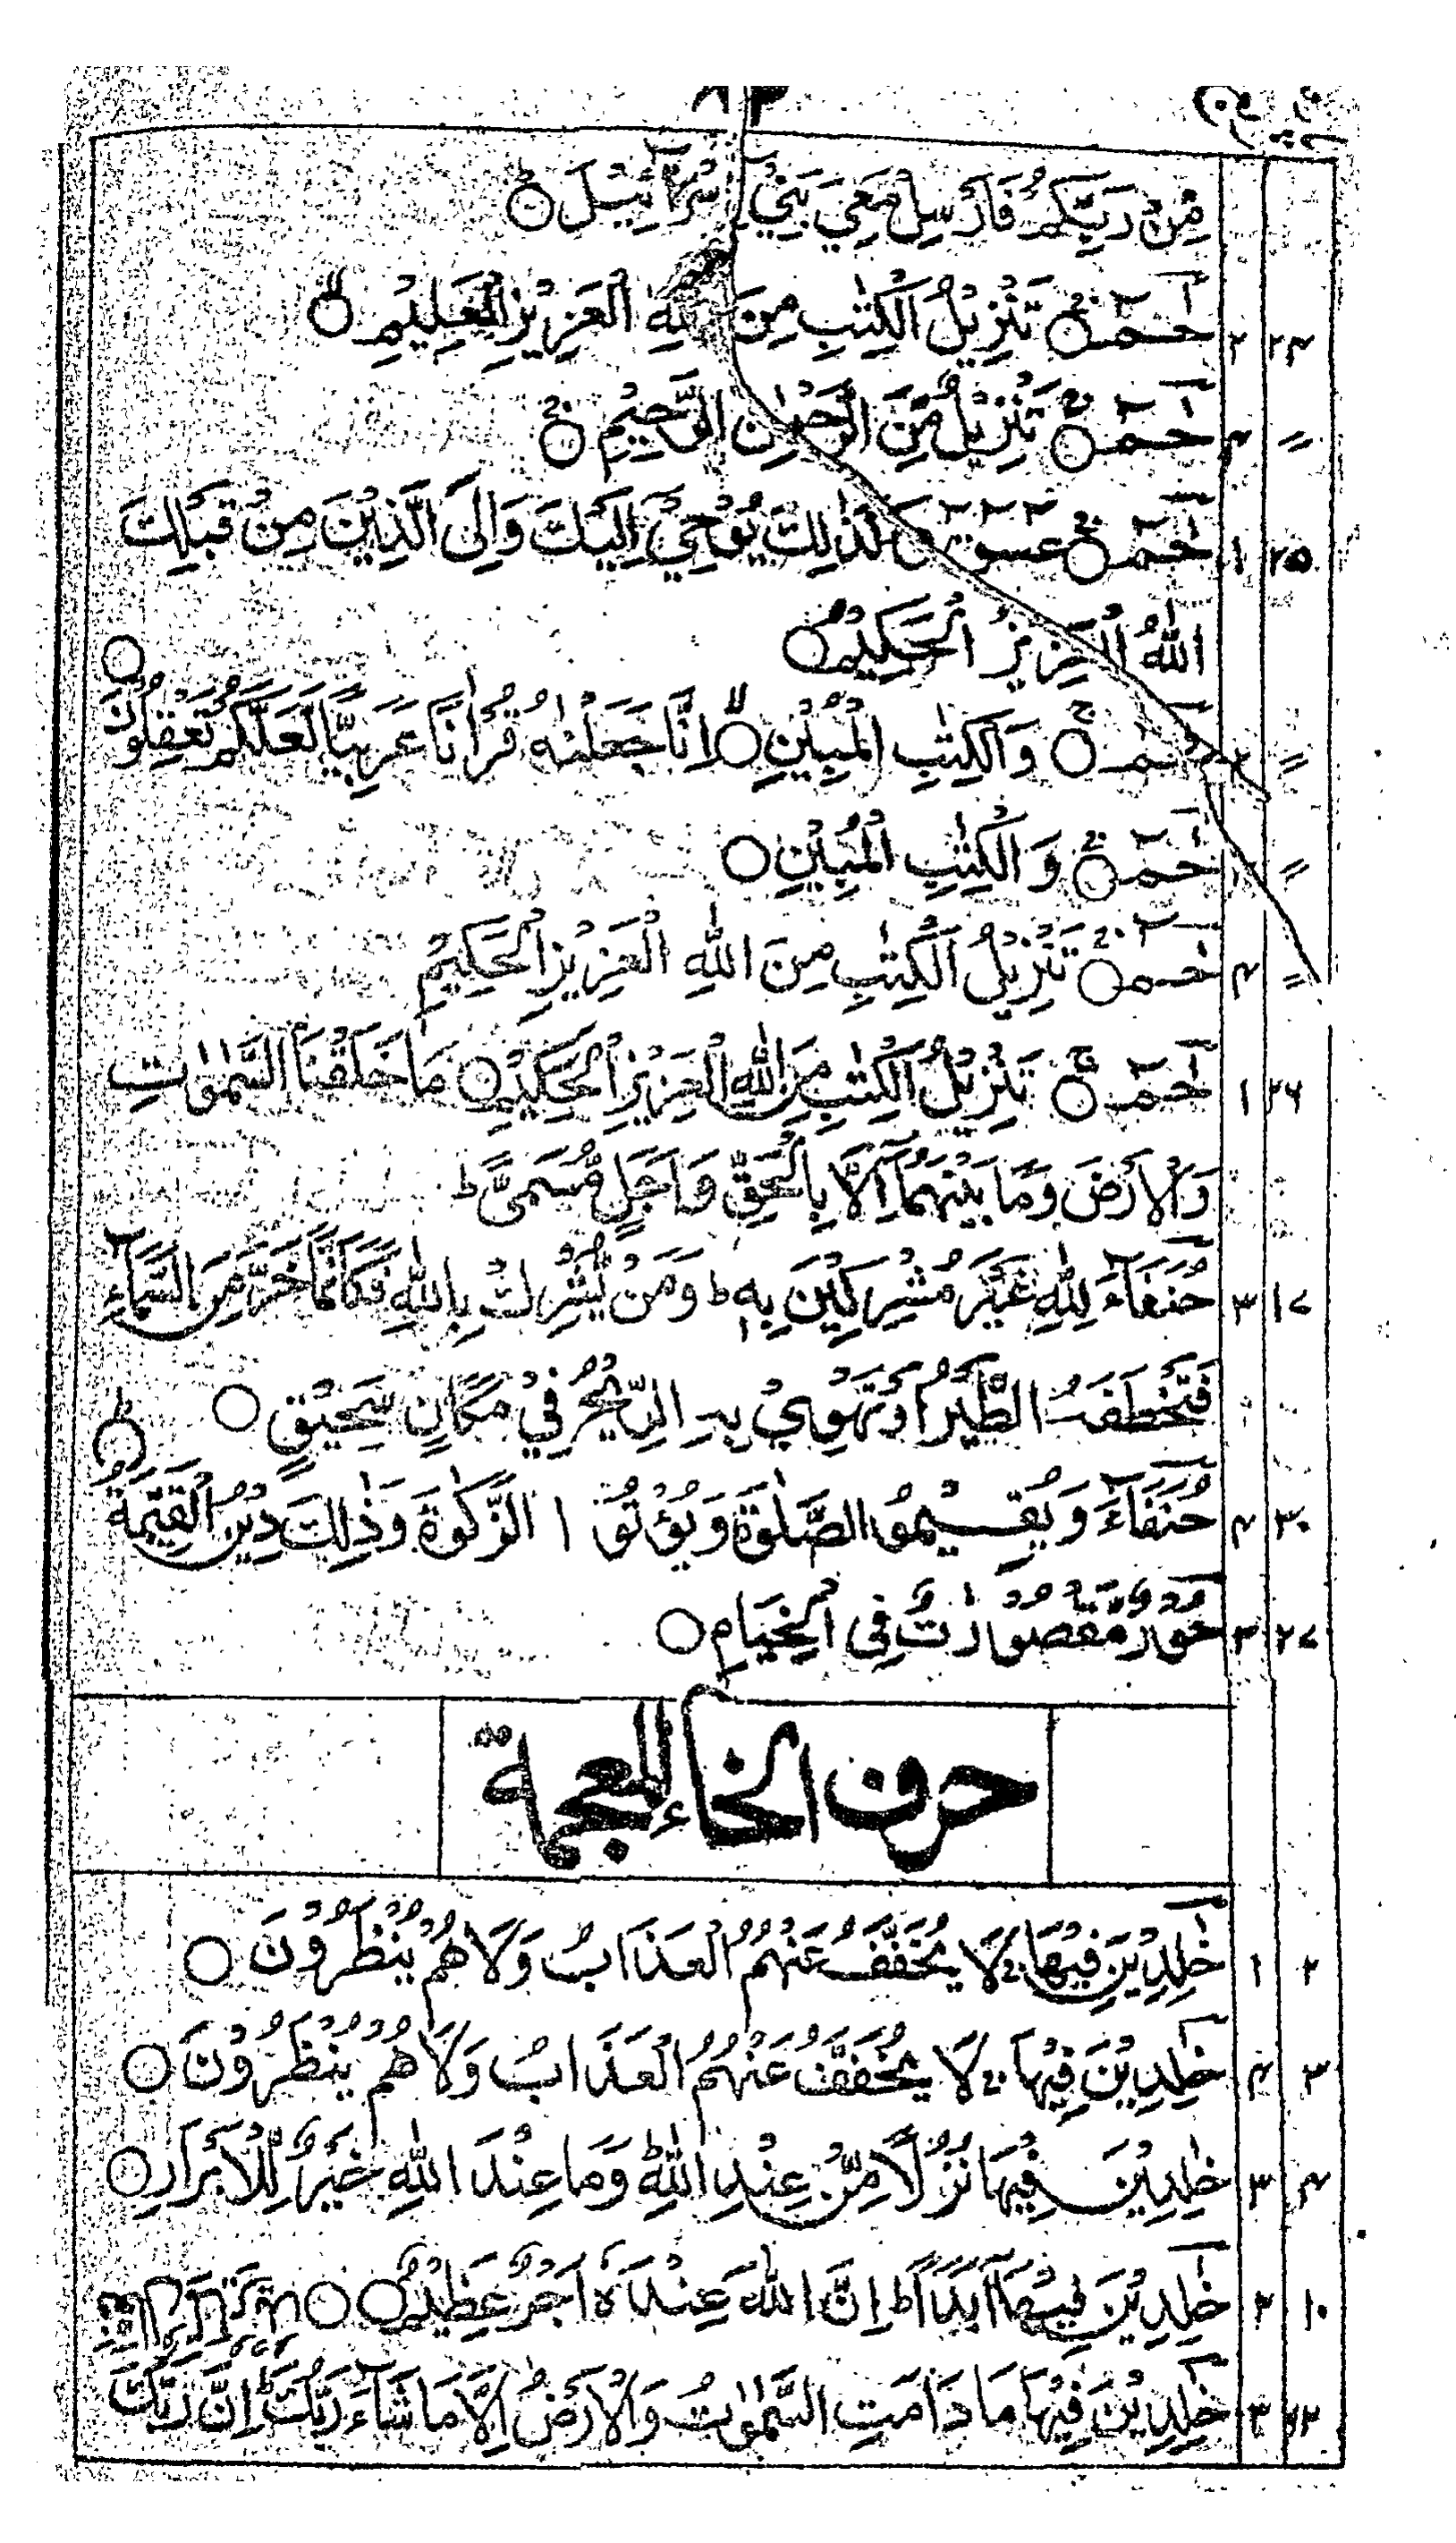 مِّنْ رَّبِّكُمْ فَاَرْسِلْ مَعِيَ بَنِيْٓ اِسْرَآئِيْلَ ۝ؕ
۲۴ ۲ حٰمٓ ۝ۚ تَنْزِيْلُ الْكِتٰبِ مِنَ اللّٰهِ الْعَزِيْزِ الْعَلِيْمِ ۝ۙ
〃 ۴ حٰمٓ ۝ۚ تَنْزِيْلٌ مِّنَ الرَّحْمٰنِ الرَّحِيْمِ ۝ۚ
۲۵ ۱ حٰمٓ ۝ۚ عٓسٓقٓ كَذٰلِكَ يُوْحِيْٓ اِلَيْكَ وَاِلَى الَّذِيْنَ مِنْ قَبْلِكَ
اللّٰهُ الْعَزِيْزُ الْحَكِيْمُ ۝
〃 حٰمٓ ۝ۚ وَالْكِتٰبِ الْمُبِيْنِ ۝ۙ اِنَّا جَعَلْنٰهُ قُرْاٰنًا عَرَبِيًّا لَّعَلَّكُمْ تَعْقِلُوْنَ ۝
〃 حٰمٓ ۝ۚ وَالْكِتٰبِ الْمُبِيْنِ ۝
〃 ۴ حٰمٓ ۝ۚ تَنْزِيْلُ الْكِتٰبِ مِنَ اللّٰهِ الْعَزِيْزِ الْحَكِيْمِ
۲۶ ۱ حٰمٓ ۝ۚ تَنْزِيْلُ الْكِتٰبِ مِنَ اللّٰهِ الْعَزِيْزِ الْحَكِيْمِ ۝ مَا خَلَقْنَا السَّمٰوٰتِ
وَالْاَرْضَ وَمَا بَيْنَهُمَآ اِلَّا بِالْحَقِّ وَاَجَلٍ مُّسَمًّى ؕ
۱۷ ۳ حُنَفَآءَ لِلّٰهِ غَيْرَ مُشْرِكِيْنَ بِهٖ ؕ وَمَنْ يُّشْرِكْ بِاللّٰهِ فَكَاَنَّمَا خَرَّ مِنَ السَّمَآءِ
فَتَخْطَفُهُ الطَّيْرُ اَوْ تَهْوِيْ بِهِ الرِّيْحُ فِيْ مَكَانٍ سَحِيْقٍ ۝
۳۰ ۴ حُنَفَآءَ وَيُقِيْمُوا الصَّلٰوةَ وَيُؤْتُوا الزَّكٰوةَ وَذٰلِكَ دِيْنُ الْقَيِّمَةِ ۝ؕ
۲۷ ۳ حُوْرٌ مَّقْصُوْرَاتٌ فِى الْخِيَامِ ۝
حرف الخاء المعجمة
۲ ۱ خٰلِدِيْنَ فِيْهَا ۚ لَا يُخَفَّفُ عَنْهُمُ الْعَذَابُ وَلَا هُمْ يُنْظَرُوْنَ ۝
۳ ۴ خٰلِدِيْنَ فِيْهَا ۚ لَا يُخَفَّفُ عَنْهُمُ الْعَذَابُ وَلَا هُمْ يُنْظَرُوْنَ ۝
۴ ۳ خٰلِدِيْنَ فِيْهَا نُزُلًا مِّنْ عِنْدِ اللّٰهِ ؕ وَمَا عِنْدَ اللّٰهِ خَيْرٌ لِّلْاَبْرَارِ ۝
۱۰ ۲ خٰلِدِيْنَ فِيْهَآ اَبَدًا ؕ اِنَّ اللّٰهَ عِنْدَهٗٓ اَجْرٌ عَظِيْمٌ ۝ ۝
۱۲ ۳ خٰلِدِيْنَ فِيْهَا مَا دَامَتِ السَّمٰوٰتُ وَالْاَرْضُ اِلَّا مَا شَآءَ رَبُّكَ ؕ اِنَّ رَبَّكَ